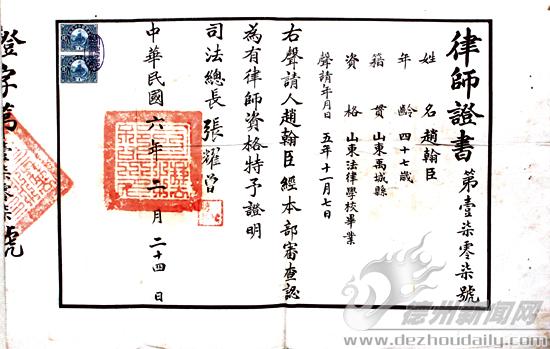 律師證書第壹柒零柒號
姓名趙翰臣
年齡四十七歲
籍貫山東禹城縣
資格山東法律學校畢業
聲請年月日五年十一月七日
右聲請人趙翰臣經本部審查認
為有律師資格特予證明
司法總長張耀曾
中華民國六年二月二十四日
證字第壹柒零柒號
德州新闻网
www.dezhoudaily.com